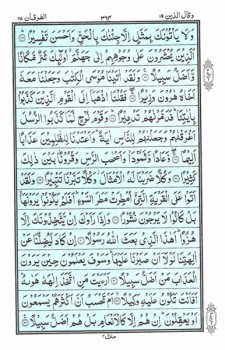 وقال الذين ١٩ ٣٦٣ الفرقان ٢٥
وَلَا يَأْتُوْنَكَ بِمَثَلٍ اِلَّا جِئْنٰكَ بِالْحَقِّ وَاَحْسَنَ تَفْسِيْرًا
اَلَّذِيْنَ يُحْشَرُوْنَ عَلٰى وُجُوْهِهِمْ اِلٰى جَهَنَّمَ اُولٰٓئِكَ شَرٌّ مَّكَانًا
وَّاَضَلُّ سَبِيْلًا وَلَقَدْ اٰتَيْنَا مُوْسَى الْكِتٰبَ وَجَعَلْنَا مَعَهٗٓ
اَخَاهُ هٰرُوْنَ وَزِيْرًا فَقُلْنَا اذْهَبَآ اِلَى الْقَوْمِ الَّذِيْنَ كَذَّبُوْا
بِاٰيٰتِنَا فَدَمَّرْنٰهُمْ تَدْمِيْرًا وَقَوْمَ نُوْحٍ لَّمَّا كَذَّبُوا الرُّسُلَ
اَغْرَقْنٰهُمْ وَجَعَلْنٰهُمْ لِلنَّاسِ اٰيَةً وَاَعْتَدْنَا لِلظّٰلِمِيْنَ عَذَابًا
اَلِيْمًا وَّعَادًا وَّثَمُوْدَا۟ وَاَصْحٰبَ الرَّسِّ وَقُرُوْنًۢا بَيْنَ ذٰلِكَ
كَثِيْرًا وَكُلًّا ضَرَبْنَا لَهُ الْاَمْثَالَ وَكُلًّا تَبَّرْنَا تَتْبِيْرًا وَلَقَدْ
اَتَوْا عَلَى الْقَرْيَةِ الَّتِيْٓ اُمْطِرَتْ مَطَرَ السَّوْءِ اَفَلَمْ يَكُوْنُوْا يَرَوْنَهَا
بَلْ كَانُوْا لَا يَرْجُوْنَ نُشُوْرًا وَاِذَا رَاَوْكَ اِنْ يَّتَّخِذُوْنَكَ اِلَّا
هُزُوًا اَهٰذَا الَّذِيْ بَعَثَ اللّٰهُ رَسُوْلًا اِنْ كَادَ لَيُضِلُّنَا عَنْ
اٰلِهَتِنَا لَوْلَآ اَنْ صَبَرْنَا عَلَيْهَا وَسَوْفَ يَعْلَمُوْنَ حِيْنَ يَرَوْنَ
الْعَذَابَ مَنْ اَضَلُّ سَبِيْلًا اَرَءَيْتَ مَنِ اتَّخَذَ اِلٰهَهٗ هَوٰىهُ
اَفَاَنْتَ تَكُوْنُ عَلَيْهِ وَكِيْلًا اَمْ تَحْسَبُ اَنَّ اَكْثَرَهُمْ يَسْمَعُوْنَ
اَوْ يَعْقِلُوْنَ اِنْ هُمْ اِلَّا كَالْاَنْعَامِ بَلْ هُمْ اَضَلُّ سَبِيْلًا